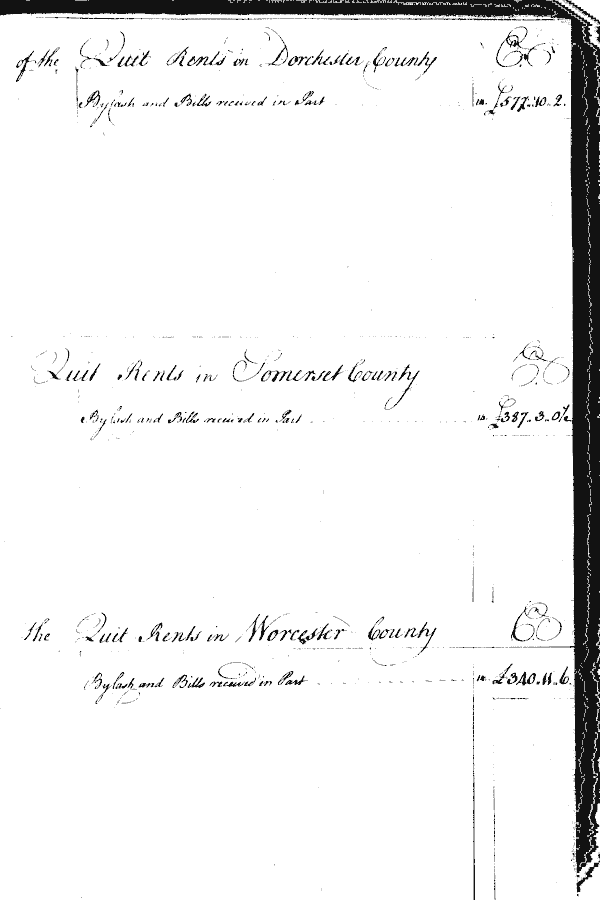 of the Quit Rents in Dorchester County Cr.
By Cash and Bills received in Part £577..10..2.
Quit Rents in Somerset County Cr.
By Cash and Bills received in Part £387..3..0½
the Quit Rents in Worcester County Cr.
By Cash and Bills received in Part £340..11..6.